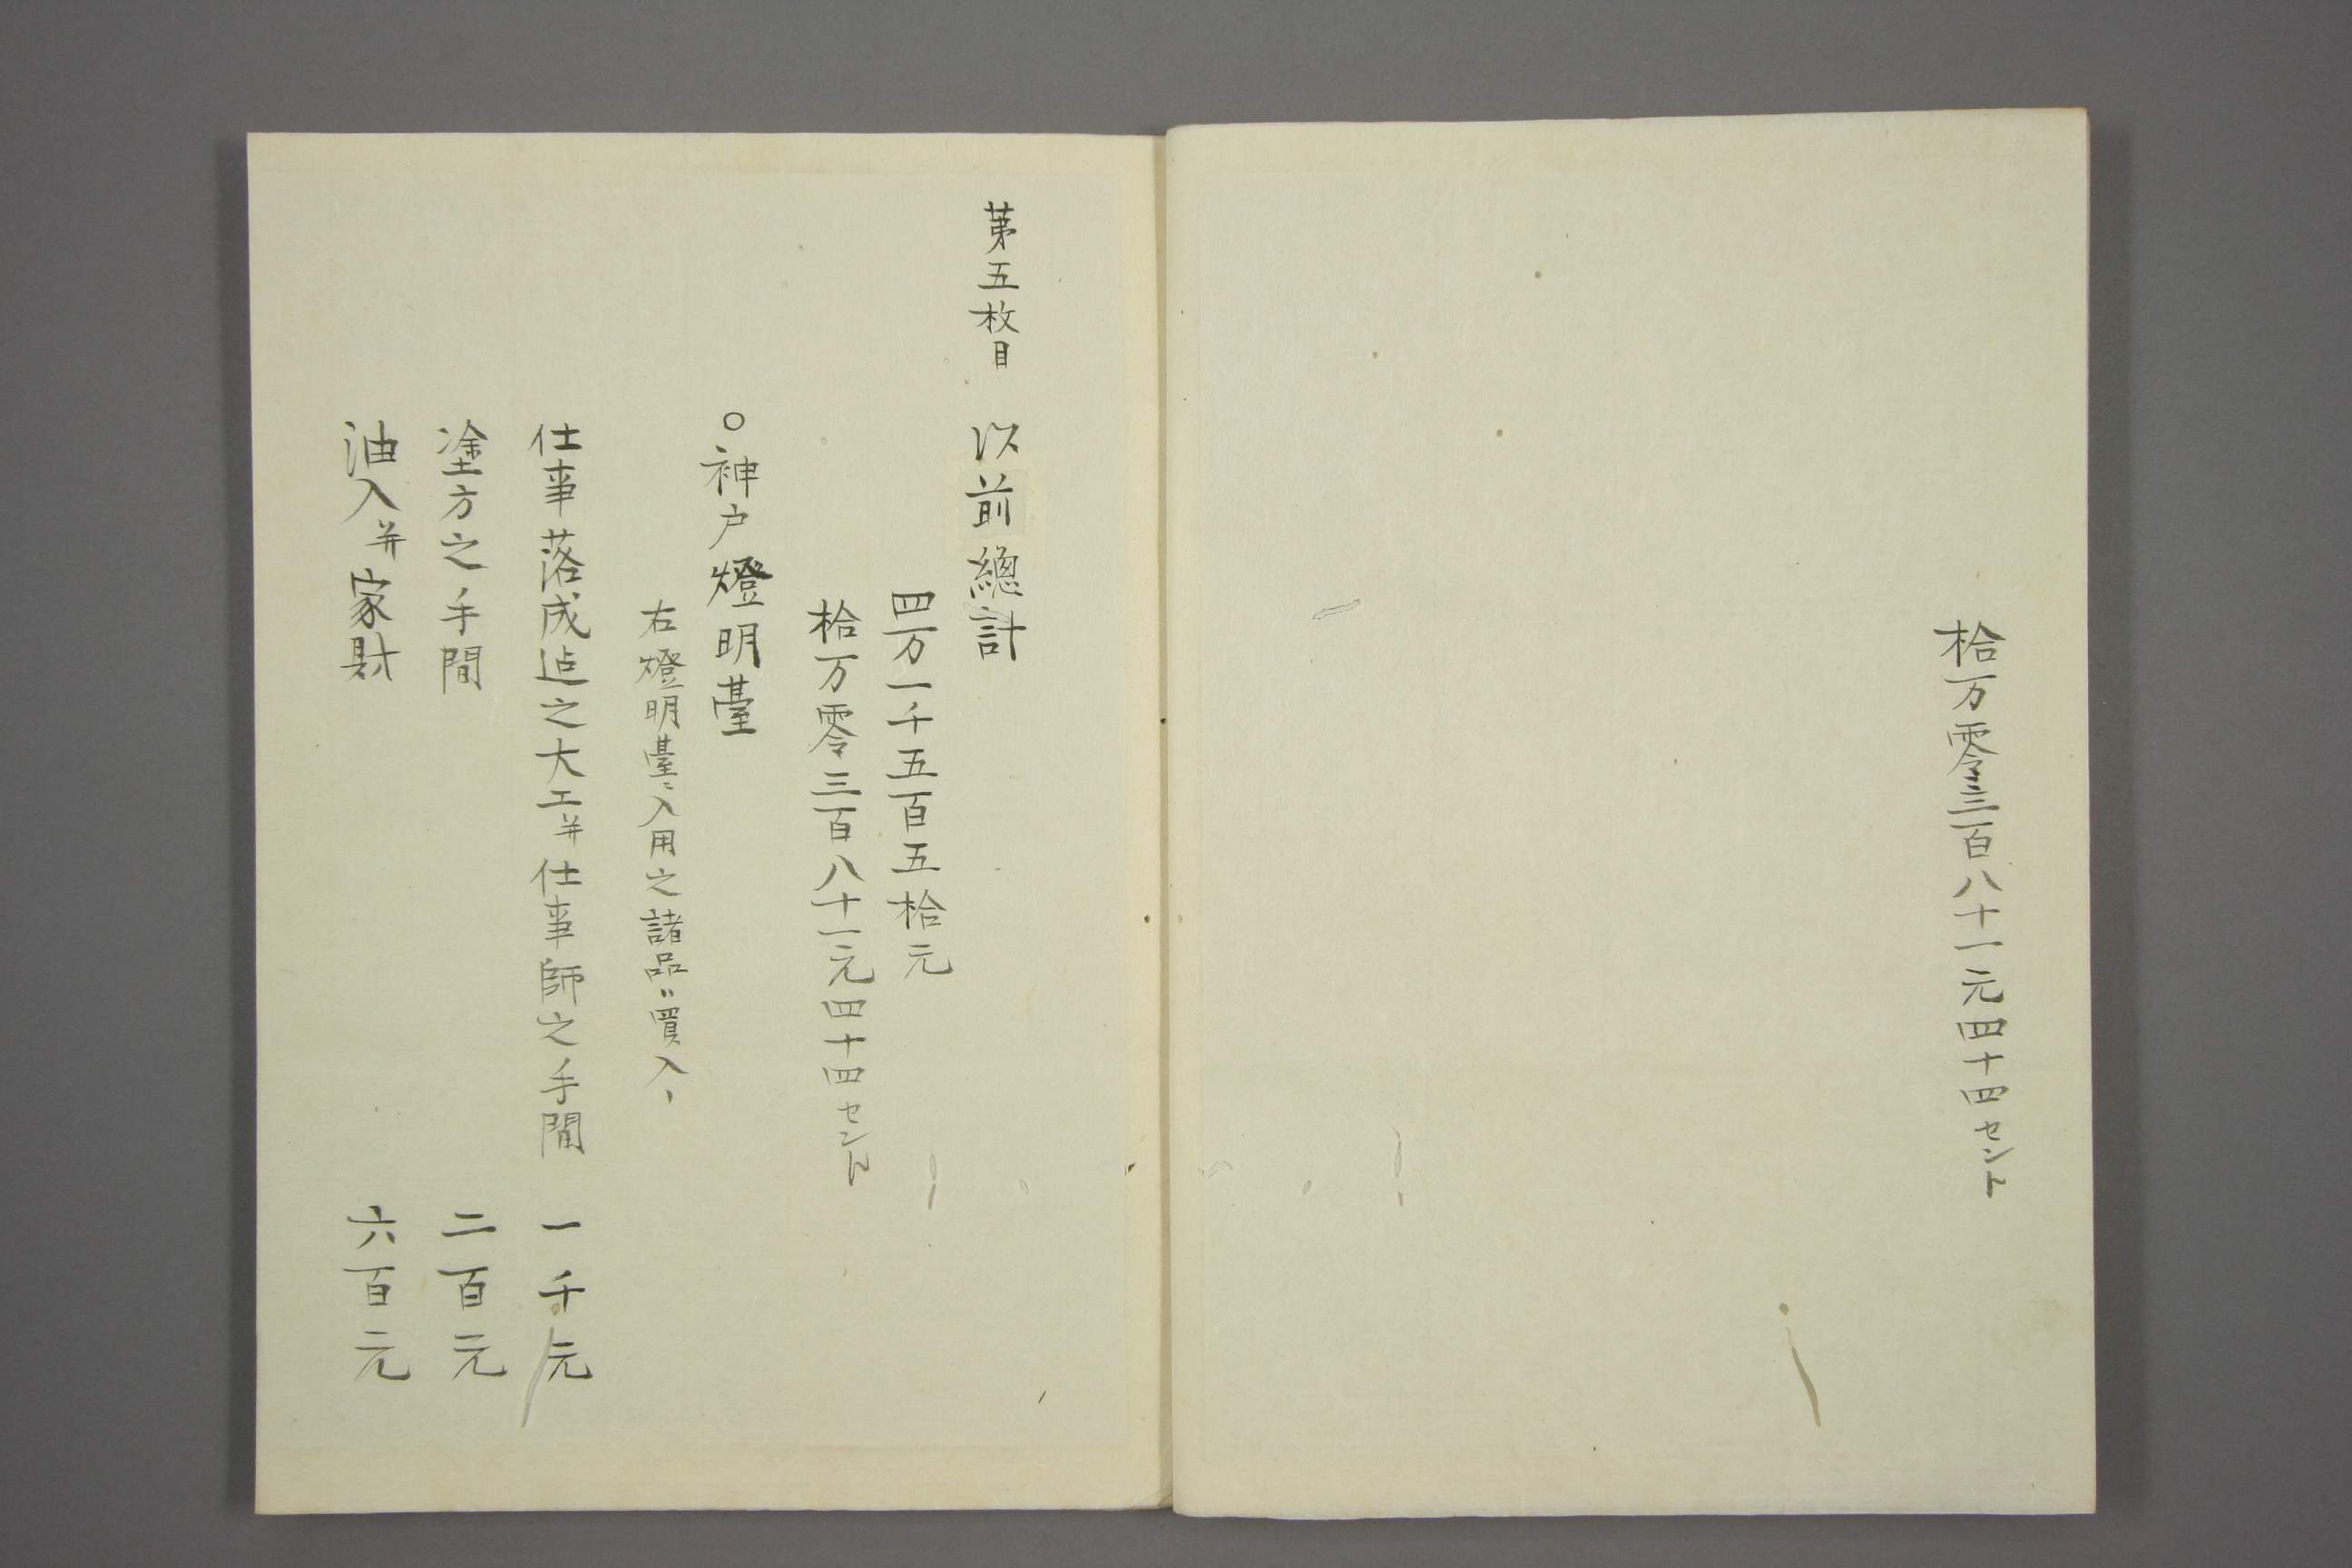 拾万零三百八十一元四十四セント
第五枚目 以前總計
四万一千五百五拾元
拾万零三百八十一元四十四セント
○神戸燈明臺
右燈明臺ニ入用之諸品買入
仕事落成迠之大工并仕事師之手間 一千元
塗方之手間 二百元
油入并家財 六百元